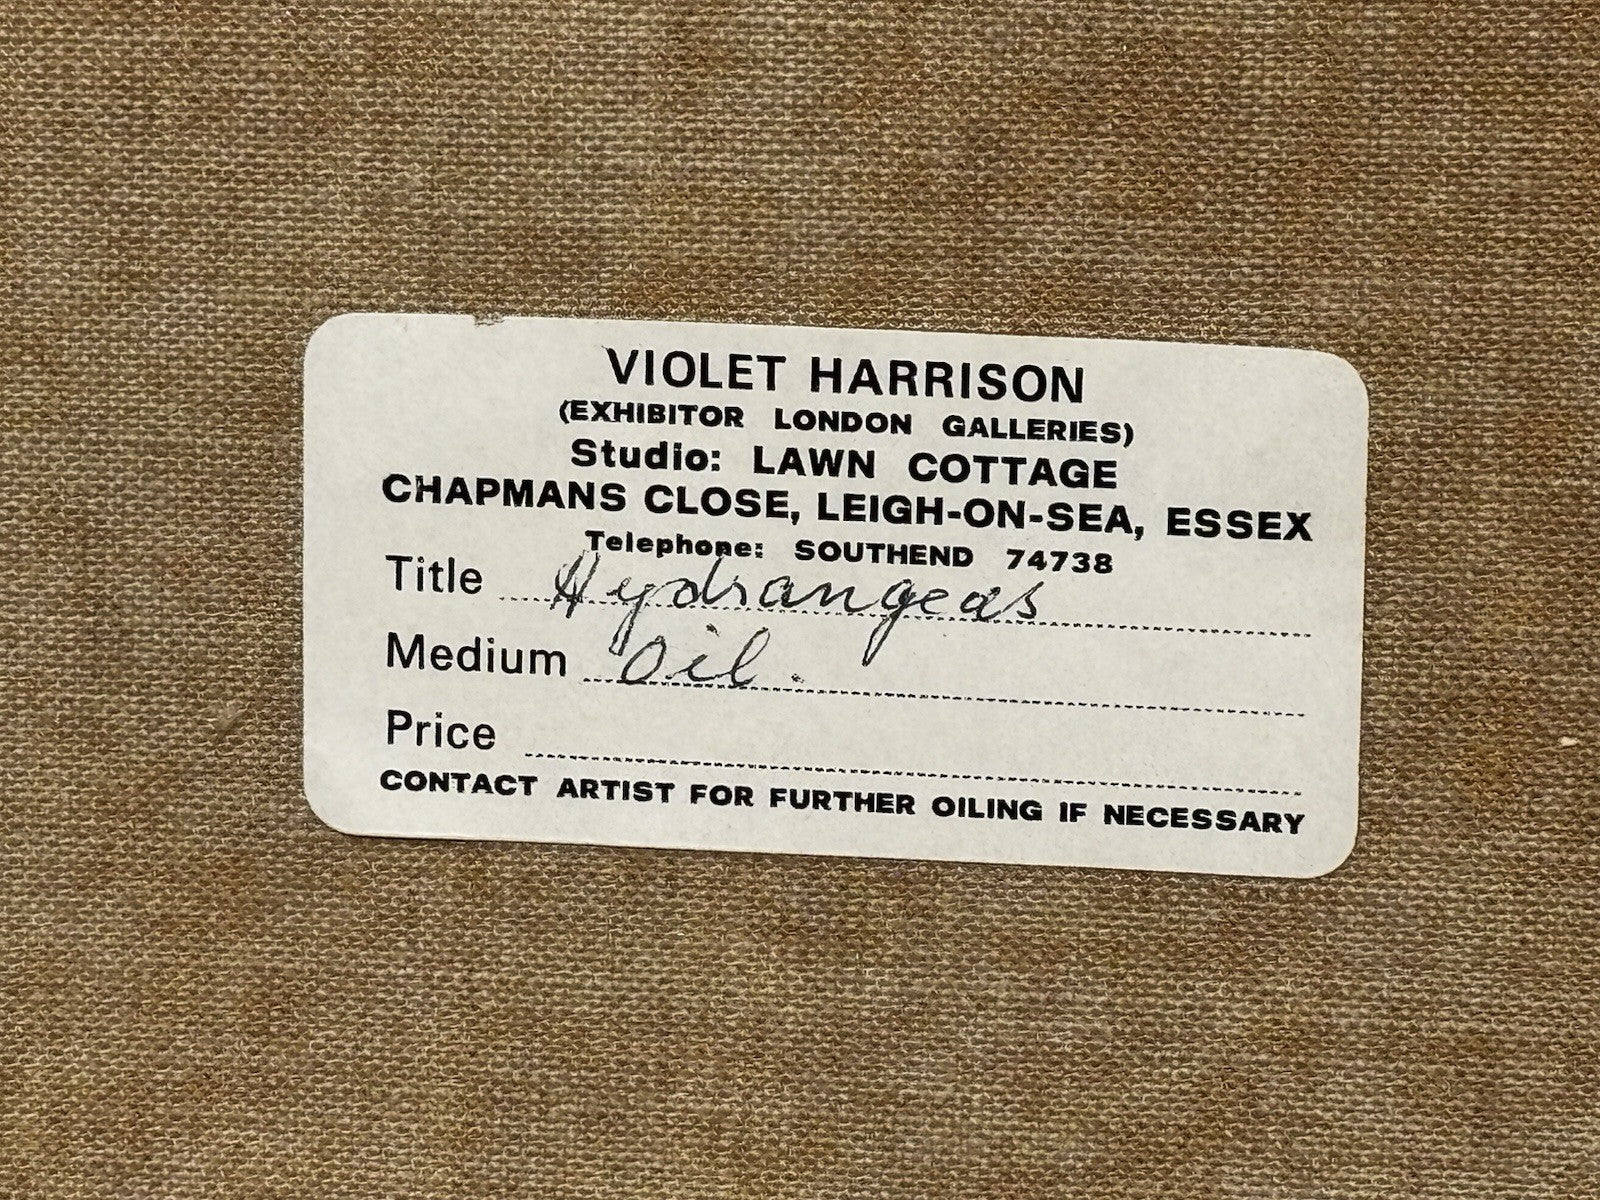 VIOLET HARRISON
(EXHIBITOR LONDON GALLERIES)
Studio: LAWN COTTAGE
CHAPMANS CLOSE, LEIGH-ON-SEA, ESSEX
Telephone: SOUTHEND 74738
Title Hydrangeas
Medium Oil.
Price
CONTACT ARTIST FOR FURTHER OILING IF NECESSARY